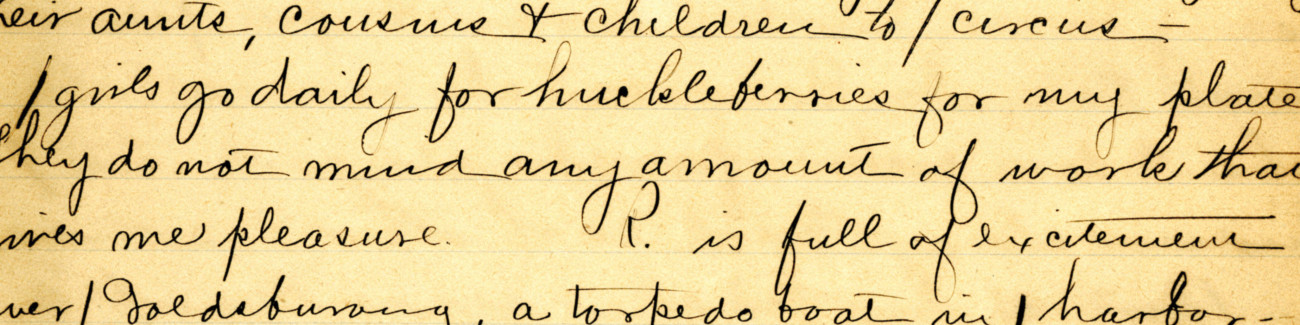 eir aunts, cousins & children to / circus —
/ girls go daily for huckleberries for my plate
they do not mind any amount of work that
ives me pleasure. R. is full of excitement
ver / a torpedo boat in / harbor -